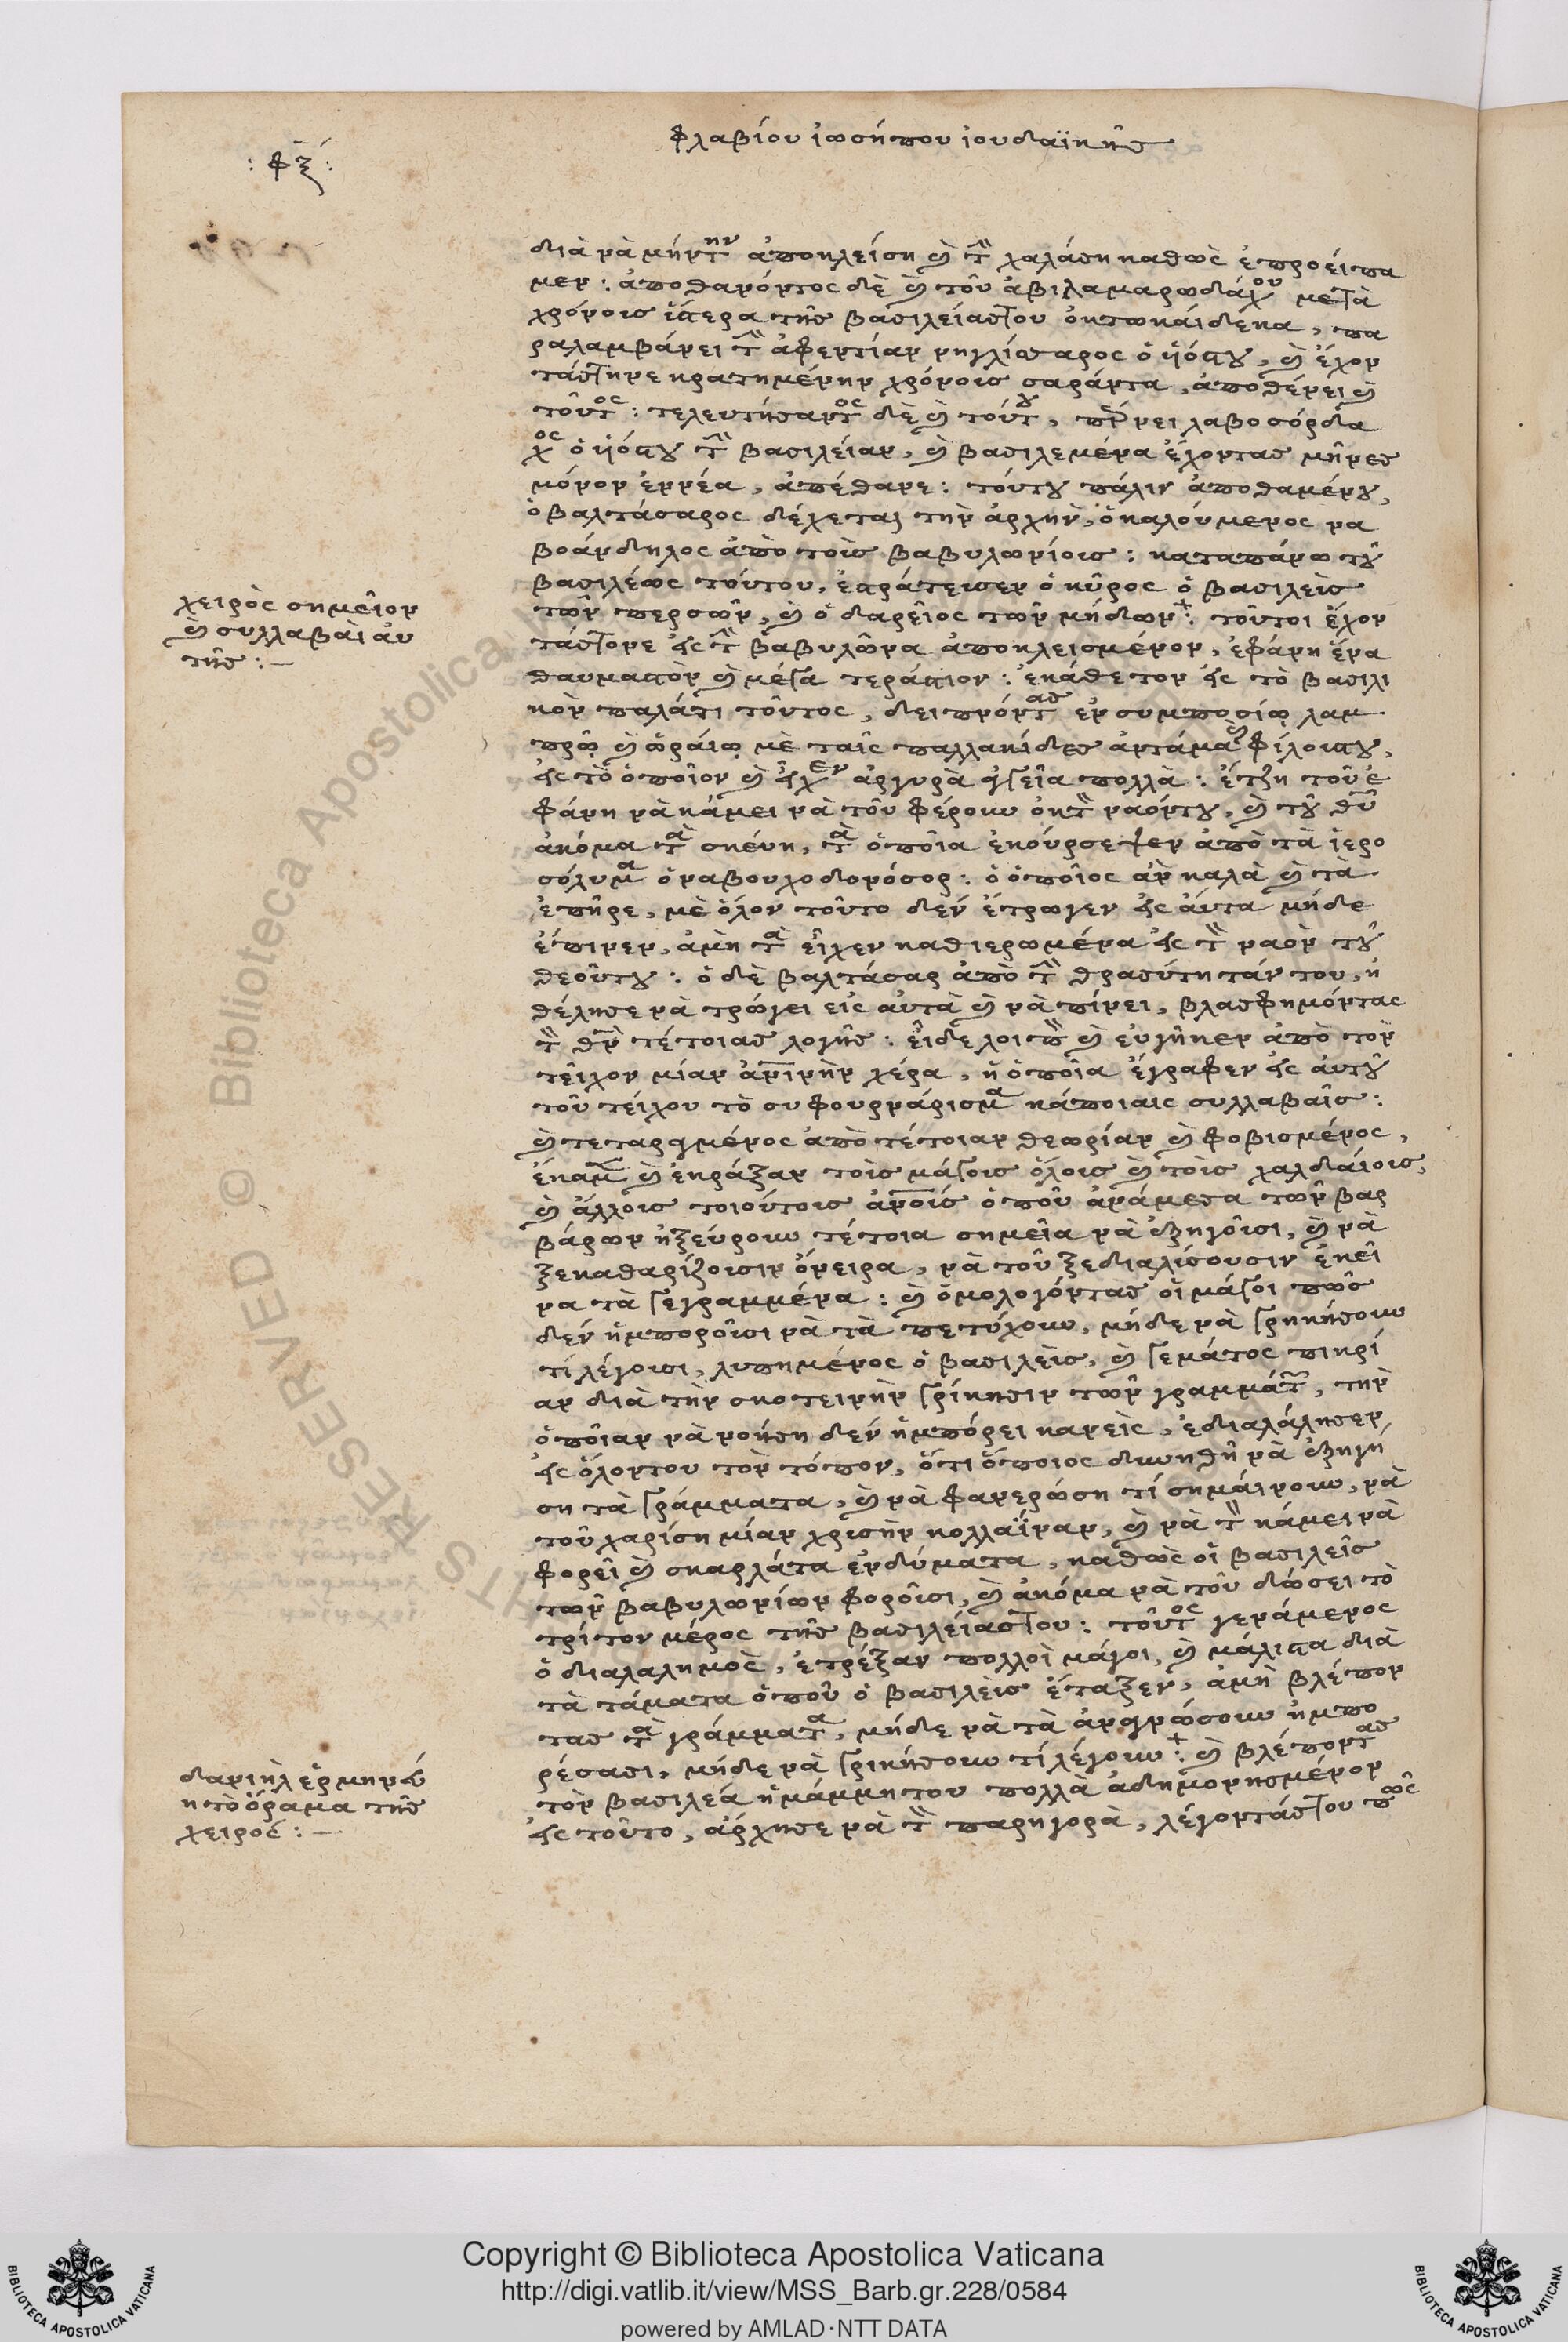 φλαβίου ἰωσήπου ἰουδαϊκῆς
: φξ :
διὰ νὰ μήν την ἀποκλείση καὶ τὴν χαλάση καθὼς ἐπροείπα
μεν : ἀποθανόντος δὲ καὶ τοῦ ἀβιλαμαρωδάχου μετὰ
χρόνοις ὕστερα τῆς βασιλείαστου ὀκτωκαίδεκα, πα
ραλαμβάνει τὴν ἀφεντίαν νηγλίσαρος ὁ ὑιόστου, καὶ ἔχον
τάστηνε κρατημένην χρόνοις σαράντα, ἀποθένει καὶ
τοῦτος : τελευτήσαντος δὲ καὶ τούτου, παίρνει λαβοσόρδα
χος ὁ ὑιόστου τὴν βασιλείαν, καὶ βασιλεμένα ἔχοντας μῆνες
μόνον ἐννέα, ἀπέθανε : τούτου πάλιν ἀποθαμένου,
ὁ βαλτάσαρος δέχεται τὴν ἀρχὴν, ὁ καλούμενος να
βοάνδηλος ἀπὸ τοὶς βαβυλωνίοις : καταπάνω τοῦ
βασιλέως τούτου, ἐστράτεισεν ὁ κῦρος ὁ βασιλεὶς
τῶν περσῶν, καὶ ὁ δαρεῖος τῶν μήδων : τοῦτοι ἔχον
τάστονε εἰς τὴν βαβυλῶνα ἀποκλεισμένον, ἐφάνη ἕνα
θαυμαστὸν καὶ μέγα τεράστιον : ἐκάθετον εἰς τὸ βασιλι
κὸν παλάτι τοῦτος, δειπνόντας ἐν συμποσίῳ λαμ
πρῷ καὶ ὡραίῳ μὲ ταῖς παλλακίδες ἀντάμα καὶ φίλουστου,
εἰς τὸ ὁποῖον καὶ εἶχεν ἀργυρὰ ἀγγεῖα πολλὰ : ἔτζη τοῦ ἐ
φάνη νὰ κάμει νὰ τοῦ φέρουν ὀκ τὸν ναόντου, καὶ τοῦ θεοῦ
ἀκόμα τὰ σκέυη, τὰ ὁποῖα ἐκούρσεψεν ἀπὸ τὰ ἱερο
σόλυμα ὁ ναβουχοδονόσορ : ὁ ὁποῖος ἀν καλὰ καὶ τὰ
ἐπῆρε, μὲ ὅλον τοῦτο δεν ἔτρωγεν εἰς ἀυτα μήδε
ἔπινεν, ἀμὴ τὰ εἶχεν καθιερωμένα εἰς τὸν ναὸν τοῦ
θεοῦτου : ὁ δὲ βαλτάσαρ ἀπὸ τὴν θρασύτητάν του, ἠ
θέλησε νὰ τρώγει εἰς αὐτὰ καὶ νὰ πίνει, βλασφημόντας
τὸν θεὸν τέτοιας λογῆς : εἶδε λοιπὸν καὶ εὐγῆκεν ἀπὸ τὸν
τεῖχον μίαν ἀνθρωπινὴν χέρα, ἡ ὁποῖα ἔγραφεν εἰς ἀυτοῦ
τοῦ τείχου τὸ σοφουρνάρισμα κάποιαις συλλαβαῖς :
καὶ τεταραγμένος ἀπὸ τέτοιαν θεωρίαν καὶ φοβισμένος,
ἔκαμε καὶ ἐκράξαν τοὶς μάγοις ὅλοις καὶ τοὶς χαλδαίοις,
καὶ ἄλλοις τοιούτοις ἀνθρώποις ὁποῦ ἀνάμεσα τῶν βαρ
βάρων ἠξεύρουν τέτοια σημεῖα νὰ ἐξηγοῖσι, καὶ νὰ
ξεκαθαρίζοισιν ὄνειρα, νὰ τοῦ ξεδιαλίσουσιν ἐκεῖ
να τὰ γεγραμμένα : καὶ ὁμολογόντας οἱ μάγοι πῶς
δεν ἠμποροῖσι νὰ τὰ πετύχουν, μήδε νὰ γρηκήσουν
τί λέγοισι, λυπημένος ὁ βασιλὲις, καὶ γεμάτος πικρί
αν διὰ τὴν σκοτεινὴν γρίκησιν τῶν γραμμάτων, τὴν
ὁποῖαν νὰ νοήση δεν ἠμπόρει κανεὶς, ἐδιαλάλησεν
εἰς ὅλοντου τὸν τόπον, ὅτι ὅποιος δυνηθῆ νὰ ἐξηγή
ση τὰ γράμματα, καὶ νὰ φανερώση τί σημαίνουν, νὰ
τοῦ χαρίση μίαν χρισὴν κολλαΐναν, καὶ νὰ τὸν κάμει νὰ
φορεῖ καὶ σκαρλάτα ἐνδύματα, καθὼς οἱ βασιλεῖς
τῶν βαβυλωνίων φοροῖσι, καὶ ἀκόμα νὰ τοῦ δώσει τὸ
τρίτον μέρος τῆς βασιλείαστου : τοῦτος γενάμενος
ὁ διαλαλημὸς, ἐτρέξαν πολλοὶ μάγοι, καὶ μάλιστα διὰ
τὰ τάματα ὁποῦ ὁ βασιλὲις ἔταξεν, ἀμὴ βλέπον
τας τὰ γράμματα, μήδε νὰ τὰ ἀναγνώσουν ἠμπο
ρέσασι, μήδε νὰ γρικήσουν τί λέγουν : καὶ βλέποντας
τὸν βασιλεά ἡ μάμμη του πολλὰ ἀδημονησμένον
εἰς τοῦτο, ἀρχησε νὰ τὸν παρηγορὰ, λέγοντάστου πῶς
χειρὸς σημεῖον
καὶ συλλαβαὶ ἀυ
τῆς : —
δανιὴλ ἑρμηνεύ
ει τὸ ὅραμα τῆς
χειρός : —
Copyright © Biblioteca Apostolica Vaticana
http://digi.vatlib.it/view/MSS_Barb.gr.228/0584
powered by AMLAD·NTT DATA
BIBLIOTECA APOSTOLICA VATICANA
BIBLIOTECA APOSTOLICA VATICANA